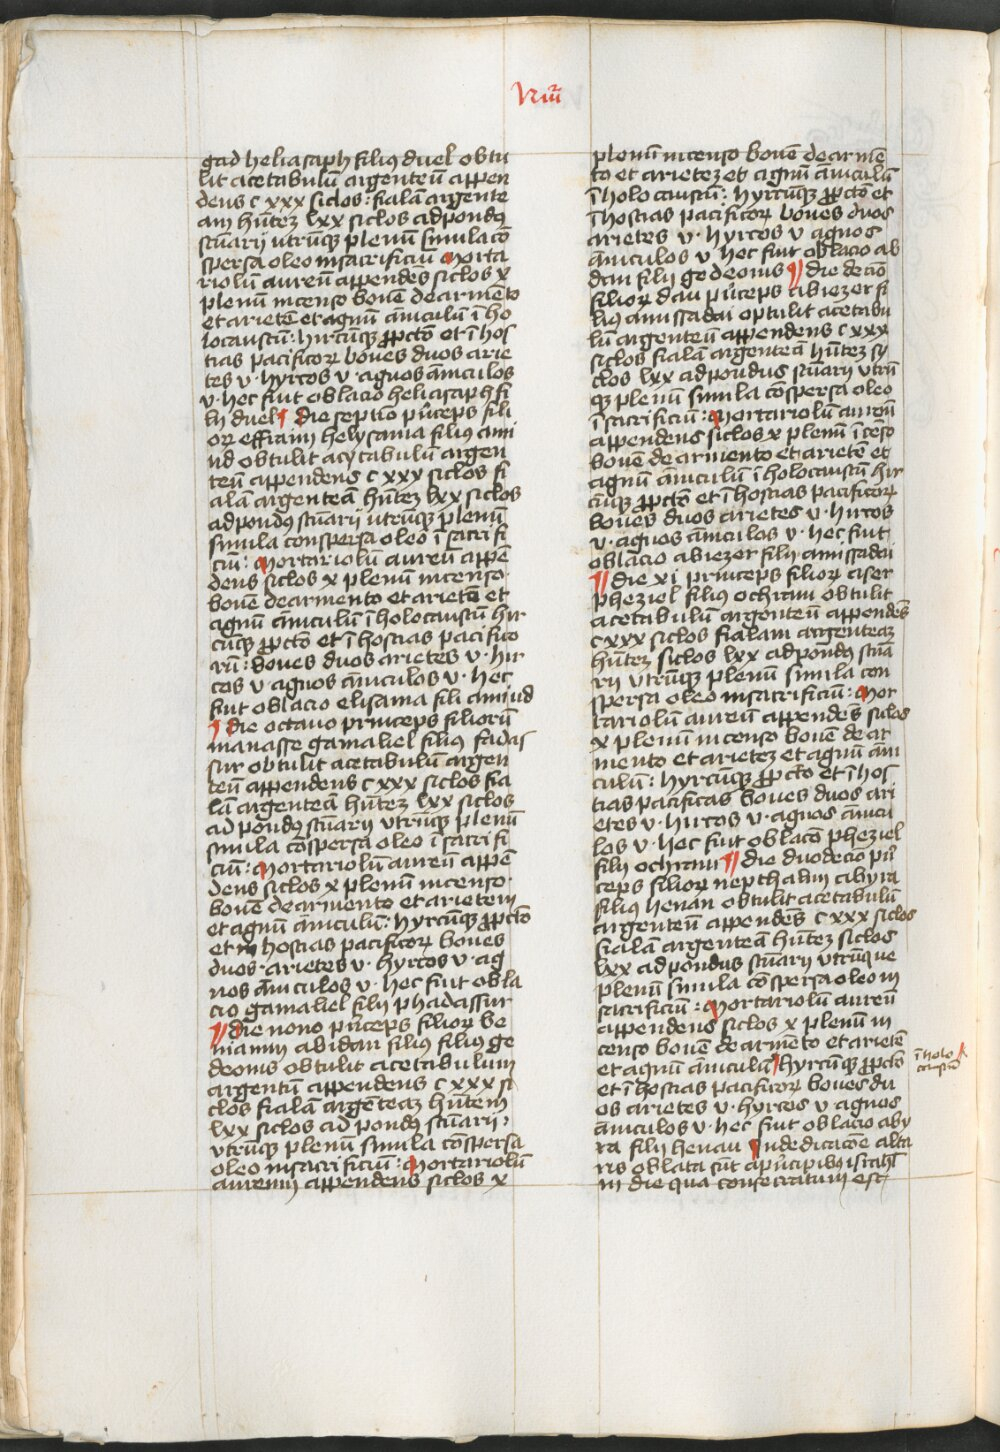 Nuͫi
gad heliasaph filiꝰ duel obtu
lit acetabulū argenteū appen
dens c xxx siclos : fialā argente
am hn̄tez lxx siclos ad pondꝰ
sc̄uarij utrūqꝫ plenū simila cō
spersa oleo in sacrificiū Morta
riolū aureū appendēs siclos x
plenū incenso bouē de armēto
et arietē et agnū āniculū ī ho
locaustū : hircūqꝫ ꝓ pcc̄to et ī hos
tias pacificoꝝ boues duos arie
tes v · hyrcos v · agnos āniculos
v · hec fuit oblacio heliasaph fi
lij duel ¶ Die septīo pͥnceps fili
oꝝ effraim helysama filius ami
ud obtulit acytabulum argen
teū appendens c xxx siclos fi
alā argenteā hn̄tez lxx siclos
ad pondꝰ sc̄uarij utrūqꝫ plenū
simula conspersa oleo ī sacrifi
ciū : Mortariolū aureū appē
dens siclos x plenū incenso ·
bouē de armento et arietē et
agnū āniculū ī holocaustū hir
cūqꝫ ꝓ pcc̄to et ī hostias pacifico
rū : boues duos arietes v · hir
cos v · agnos āniculos v · hec
fuit oblacio elisama fili amiud
¶ Die octauo princeps filiorū
manasse gamaliel filiꝰ fadas
sur obtulit acetabulū argen
teū appendens c xxx siclos fia
lā argenteā hn̄tez lxx siclos
ad pondꝰ sc̄uarij vtrūqꝫ plenū
simula cōspersa oleo ī sacrifi
ciū : Mortariolū aureū appē
dens siclos x plenū incenso ·
bouē de armento et arietem
et agnū āniculū : hyrcūqꝫ ꝓ pcc̄to
et in hostias pacificoꝝ boues
duos · arietes v · hyrcos v · ag
nos āniculos v · hec fuit obla
cio gamaliel filij phadassur
¶ Die nono pͥnceps filioꝝ be
niamin abidan filius filiꝰ ge
deonis obtulit acetabulum
argentū appendens c xxx si
clos fialā argēteaz hn̄tem
lxx siclos ad pondꝰ sc̄uarij :
vtrūqꝫ plenū simula cōspersa
oleo in sacrificiū : Mortariolū
aureum appendens siclos x
plenū incenso bouē de armē
to et arietez et agnū āniculū
ī holocaustū : hyrcūqꝫ ꝓ pcc̄to et
ī hostias pacificoꝝ boues duos
arietes v · hyrcos v agnos
āniculos v · hec fuit oblacio ab
dan filij gedeonis ¶ Die decīo
filioꝝ dan pͥnceps abiezer fi
liꝰ amissadai optulit acetabu
lū argenteū appendens c xxx
siclos fialā argenteā hn̄tez sy
clos lxx ad pondus sc̄uarij utrū
qꝫ plenū simila cōspersa oleo
ī sacrificiū : Mortariolū aureū
appendens siclos x plenū ī cēso
bouē de armento et arietē et
agnū āniculū ī holocaustū hir
cūqꝫ ꝓ pcc̄to et ī hostias pacificoꝝ
boues duos arietes v · hircos
v · agnos āniculos v · hec fuit
oblacio abiezer filij amissadai
¶ Die xi princeps filioꝝ aser
pheziel filius ochran obtulit
acetabulū argenteū appendēs
c xxx siclos fialam argenteaz
hn̄tez siclos lxx ad pondꝰ sc̄ua
rij vtrūqꝫ plenū simula con
spersa oleo in sacrificiū : Mor
tariolū aureū appendēs siclos
x plenū incenso bouē de ar
mento et arietez et agnū āni
culū : hyrcūqꝫ ꝓ pcc̄to et ī hos
tias pacificas boues duos ari
etes v · hircos v · agnos ānicu
los v · hec fuit oblacō pheziel
filij ochran ¶ Die duodecīo pͥn
ceps filioꝝ nepthalim ahyra
filiꝰ henan obtulit acetabulū
argenteū appendēs c xxx siclos
fialā argenteā hn̄tez siclos
lxx ad pondus sc̄uarij vtrūque
plenū simula cōspersa oleo in
sacrificiū : Mortariolū aureū
appendens siclos x plenū in
censo bouē de armēto et arietē
et agnū āniculū hyrcūqꝫ ꝓ pcc̄to
ī holo
caustū
et ī hostias pacificoꝝ boues du
os arietes v · hyrcos v agnos
āniculos v · hec fuit oblacio ahy
ra filij henan In dedicacōe alta
ris oblata sūt a pͥncipibꝰ israhl̄
in die qua consecratum est